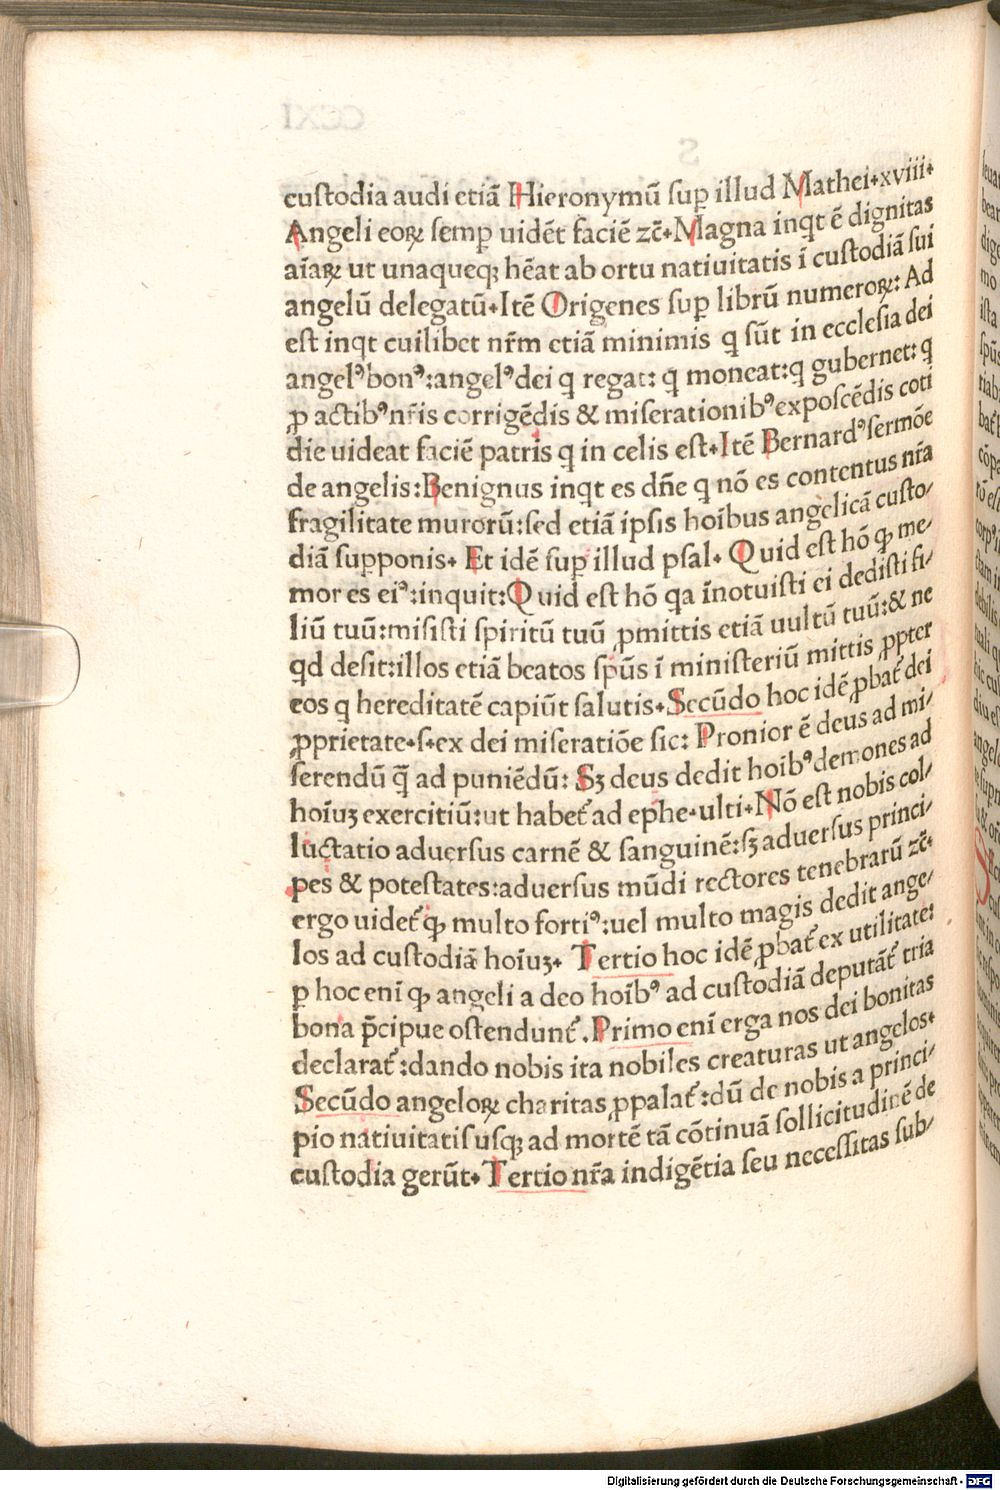 custodia audi etiā Hieronymū suꝑ illud Mathei.xviii.
Angeli eoꝝ semꝑ uidēt faciē zč.Magna inqt ē dignitas
aīaꝝ ut unaqueqꝫ hēat ab ortu natiuitatis ī custodiā sui
angelū delegatū.Itē Origenes suꝑ librū numeroꝝ: Ad
est inqt cuilibet nr̄m etiā minimis q sūt in ecclesia dei
angelꝰbonꝰ:angelꝰdei q regat: q moneat:q gubernet: q
ꝓ actibꝰnr̄is corrigēdis & miserationibꝰexposcēdis coti
die uideat faciē patris q in celis est.Itē Bernardꝰsermōe
de angelis:Benignus inqt es dn̄e q nō es contentus nr̄a
fragilitate murorū:sed etiā ipsis hoībus angelicā custo/
diā supponis. Et idē suꝑ illud psal. Quid est hō ꝙ me/
mor es eiꝰ:inquit:Quid est hō qa īnotuisti ei dedisti fi/
liū tuū:misisti spiritū tuū ꝓmittis etiā uultū tuū:& ne
qd desit:illos etiā beatos spūs ī ministeriū mittis ꝓpter
eos q hereditatē capiūt salutis.Secūdo hoc idē ꝓbat᷑ dei
ꝓprietate.s.ex dei miseratiōe sic: Pronior ē deus ad mi/
serendū q̄ ad puniēdū: Sꝫ deus dedit hoibꝰdemones ad
hoīuꝫ exercitiū:ut habet᷑ ad ephe.ulti.Nō est nobis col/
luctatio aduersus carnē & sanguinē:sꝫ aduersus princi/
pes & potestates:aduersus mūdi rectores tenebrarū zč.
ergo uidet᷑ ꝙ multo fortiꝰ:uel multo magis dedit ange/
los ad custodiā hoīuꝫ. Tertio hoc idē ꝓbat᷑ ex utilitate:
ꝑ hoc enī ꝙ angeli a deo hoībꝰ ad custodiā deputāt᷑ tria
bona p̄cipue ostendunt᷑.Primo enī erga nos dei bonitas
declarat᷑:dando nobis ita nobiles creaturas ut angelos.
Secūdo angeloꝝ charitas ꝓpalat᷑:dū de nobis a princi/
pio natiuitatis usqꝫ ad mortē tā cōtinuā sollicitudinē de
custodia gerūt.Tertio nr̄a indigētia seu necessitas sub/
Digitalisierung gefördert durch die Deutsche Forschungsgemeinschaft - DFG